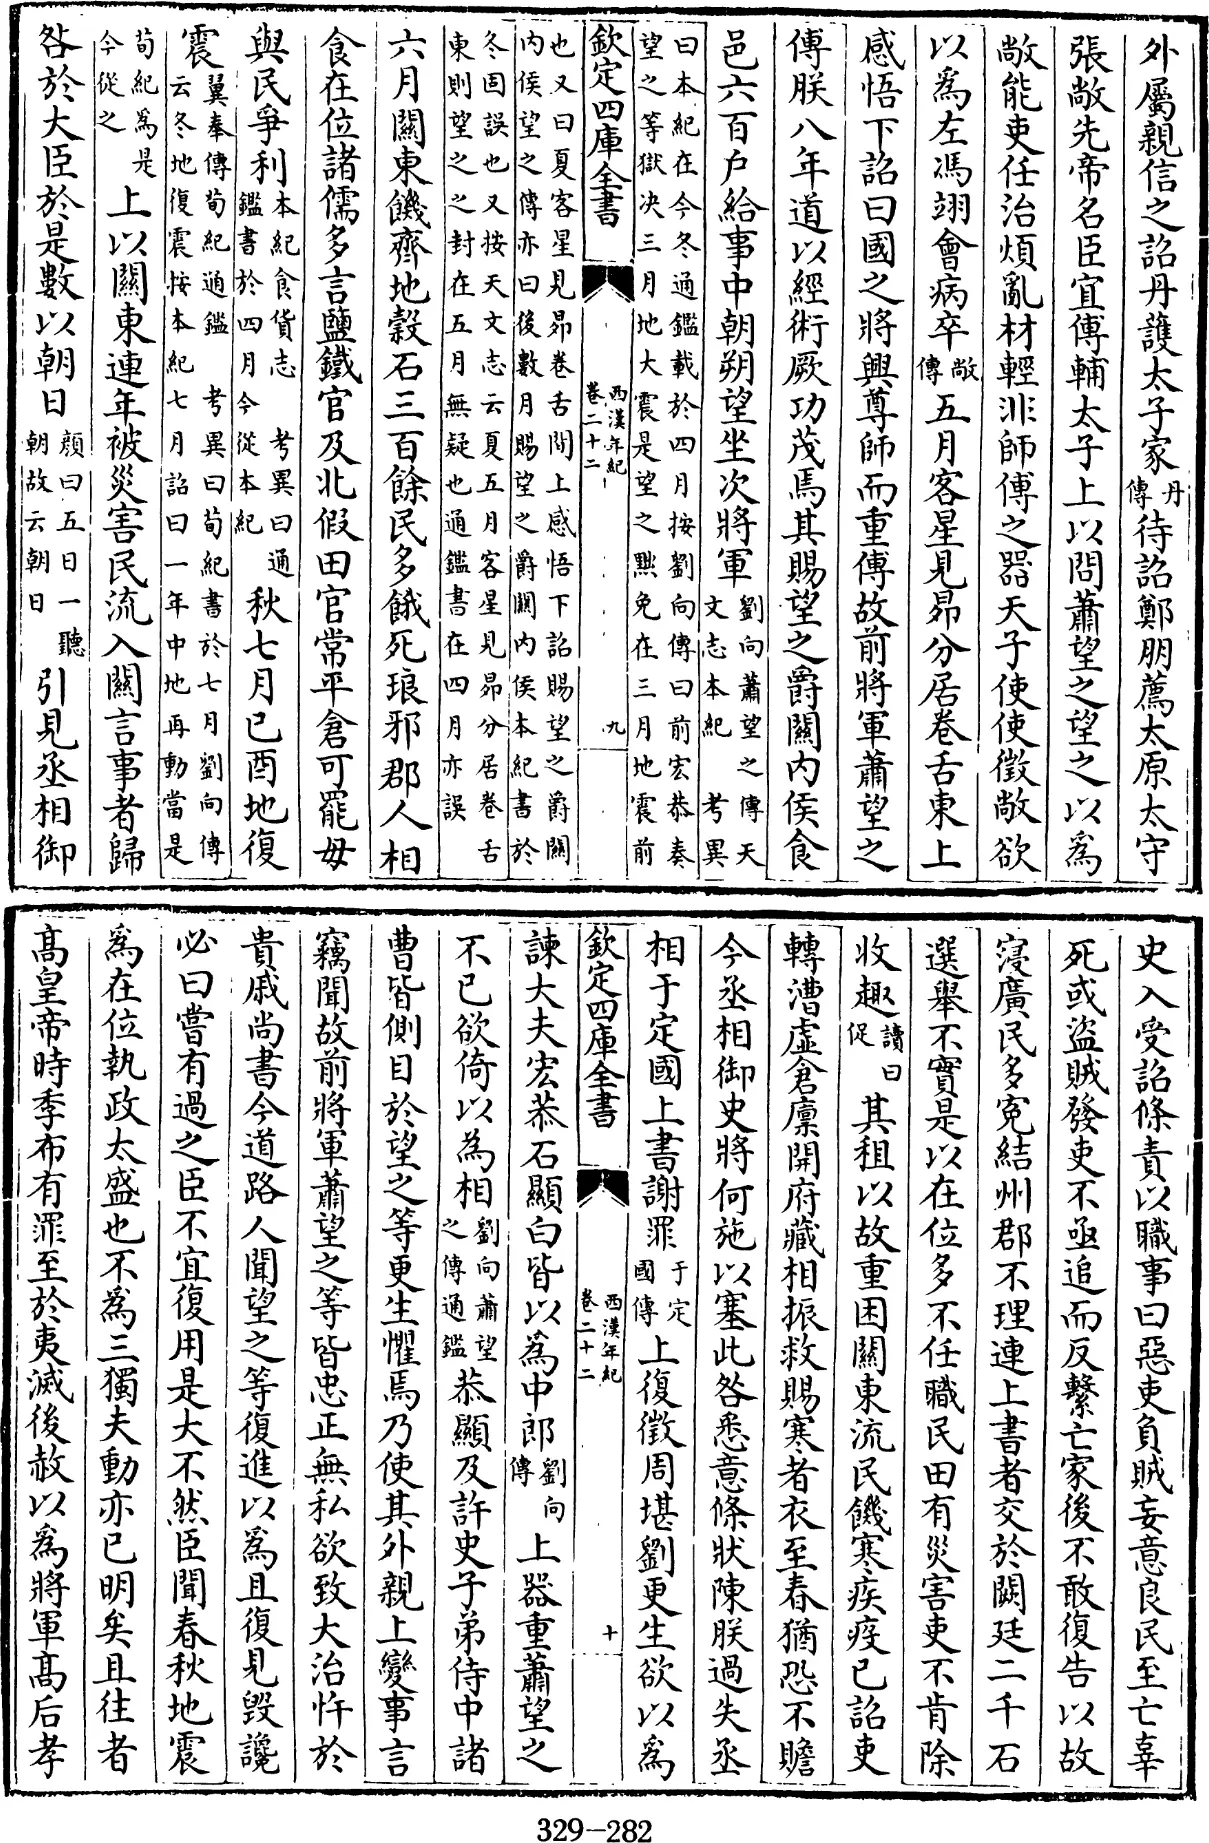 外屬親信之詔丹護太子家丹傳待詔鄭朋薦太原太守
張敞先帝名臣宜傅輔太子上以問蕭望之望之以爲
敞能吏任治煩亂材輕非師傅之器天子使使徵敞欲
以爲左馮翊會病卒敞傳五月客星見昴分居卷舌東上
感悟下詔曰國之將興尊師而重傅故前將軍蕭望之
傅朕八年道以經術厥功茂焉其賜望之爵關内侯食
邑六百户給事中朝朔望坐次將軍劉向蕭望之傳天文志本紀 考異
曰本紀在今冬通鑑載於四月按劉向傳曰前宏恭奏
望之等獄决三月地大震是望之黜免在三月地震前
欽定四庫全書 西漢年紀 卷二十二 九
也又曰夏客星見昴卷舌間上感悟下詔賜望之爵關
内侯望之傳亦曰後數月賜望之爵關内侯本紀書於
冬固誤也又按天文志云夏五月客星見昴分居卷舌
東則望之之封在五月無疑也通鑑書在四月亦誤
六月關東饑齊地穀石三百餘民多餓死琅邪郡人相
食在位諸儒多言鹽鐵官及北假田官常平倉可罷毋
與民爭利本紀食貨志 考異曰通鑑書於四月今從本紀秋七月已酉地復
震翼奉傳荀紀通鑑 考異曰荀紀書於七月劉向傳云冬地復震按本紀七月詔曰一年中地再動當是
荀紀爲是今從之上以關東連年被災害民流入關言事者歸
咎於大臣於是數以朝日顔曰五日一聽朝故云朝日引見丞相御
史入受詔條責以職事曰惡吏負賊妄意良民至亡辜
死或盜賊發吏不亟追而反繫亡家後不敢復告以故
寖廣民多寃結州郡不理連上書者交於闕廷二千石
選舉不實是以在位多不任職民田有災害吏不肯除
收趣讀曰促其租以故重困關東流民饑寒疾疫已詔吏
轉漕虛倉廩開府藏相振救賜寒者衣至春猶恐不贍
今丞相御史將何施以塞此咎悉意條狀陳朕過失丞
相于定國上書謝罪于定國傳上復徵周堪劉更生欲以爲
欽定四庫全書 西漢年紀 卷二十二 十
諫大夫宏恭石顯白皆以爲中郎劉向傳上器重蕭望之
不已欲倚以為相劉向蕭望之傳通鑑恭顯及許史子弟侍中諸
曹皆側目於望之等更生懼焉乃使其外親上變事言
竊聞故前將軍蕭望之等皆忠正無私欲致大治忤於
貴戚尚書今道路人聞望之等復進以爲且復見毀讒
必曰嘗有過之臣不宜復用是大不然臣聞春秋地震
爲在位執政太盛也不爲三獨夫動亦已明矣且往者
高皇帝時季布有罪至於夷滅後赦以爲將軍高后孝
329-282